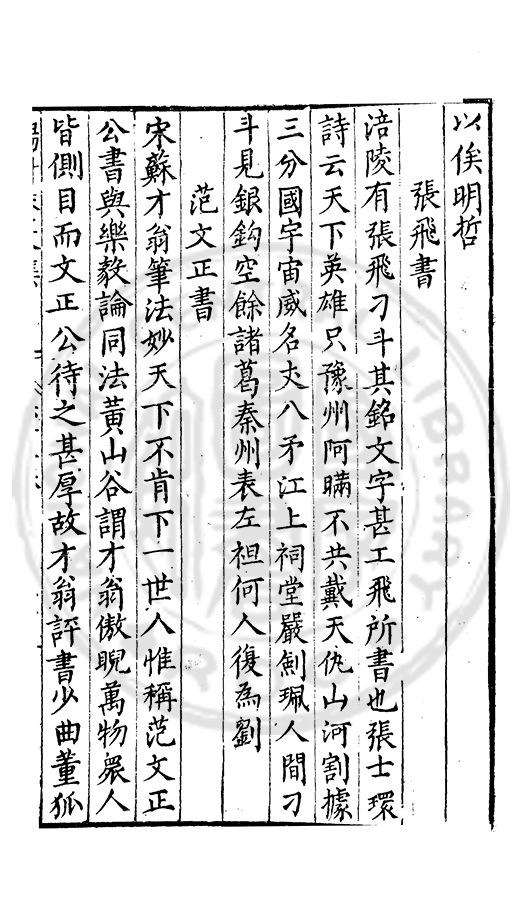 以俟明哲
張飛書
涪陵有張飛刁斗其銘文字甚工飛所書也張士環
詩云天下英雄只豫州阿瞞不共戴天仇山河割據
三分國宇宙威名丈八矛江上祠堂嚴劍珮人間刁
斗見銀鈎空餘諸葛秦州表左袒何人復為劉
范文正書
宋蘇才翁筆法妙天下不肯下一世人惟稱范文正
公書與樂毅論同法黃山谷謂才翁傲睨萬物眾人
皆側目而文正公待之甚厚故才翁評書少曲董狐